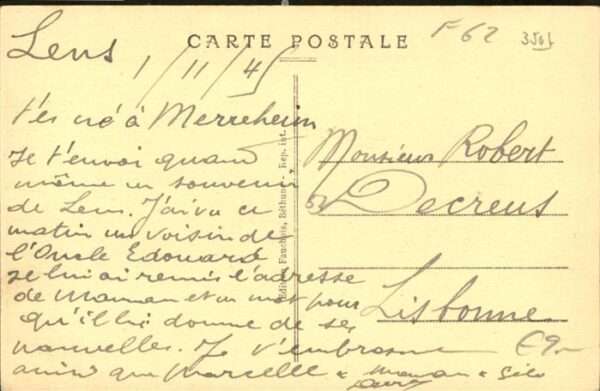 F62
CARTE POSTALE
Lens
1/11/45
Je t'envoi quand
même un souvenir
de Lens. J'ai vu ce
matin un voisin de
l'Oncle Edouard
je lui ai remis l'adresse
de Maman et un mot pour
qu'il lui donne de ses
nouvelles. Je t'embrasse
ainsi que Marcelle
Maman
Fauchois, Béthune - Rep. int.
Monsieur Robert
Decreus
Lisbonne
€9.-